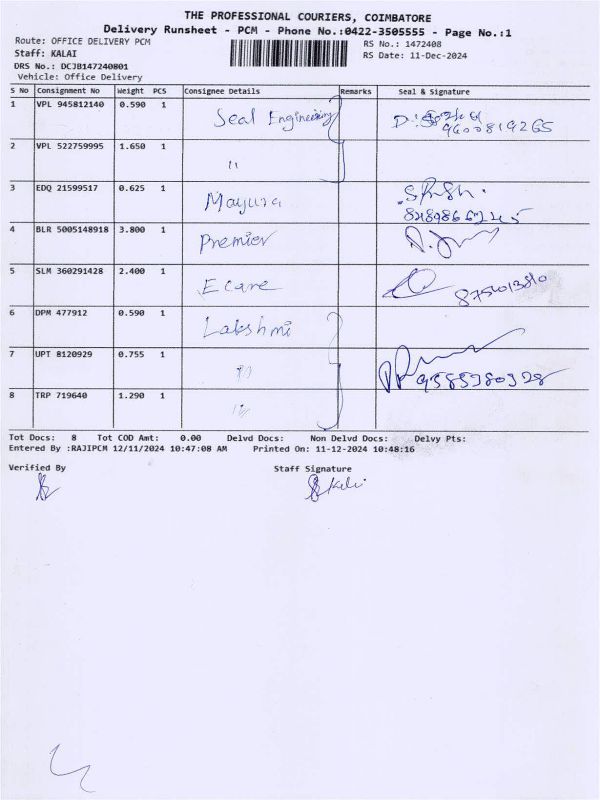 THE PROFESSIONAL COURIERS, COIMBATORE
Delivery Runsheet - PCM - Phone No.:0422-3505555 - Page No.:1
Route: OFFICE DELIVERY PCM
RS No.: 1472408
Staff: KALAI
RS Date: 11-Dec-2024
DRS No.: DCJB147240801
Vehicle: Office Delivery
S No Consignment No Weight PCS Consignee Details Remarks Seal & Signature
1 VPL 945812140 0.590 1 Seal Engineering 9600819265
2 VPL 522759995 1.650 1 "
3 EDQ 21599517 0.625 1 Mayura
4 BLR 5005148918 3.800 1 Premier
5 SLM 360291428 2.400 1 Ecare
6 DPM 477912 0.590 1 Lakshmi
7 UPT 8120929 0.755 1 "
8 TRP 719640 1.290 1 "
Tot Docs: 8 Tot COD Amt: 0.00 Delvd Docs: Non Delvd Docs: Delvy Pts:
Entered By :RAJIPCM 12/11/2024 10:47:08 AM Printed On: 11-12-2024 10:48:16
Verified By Staff Signature